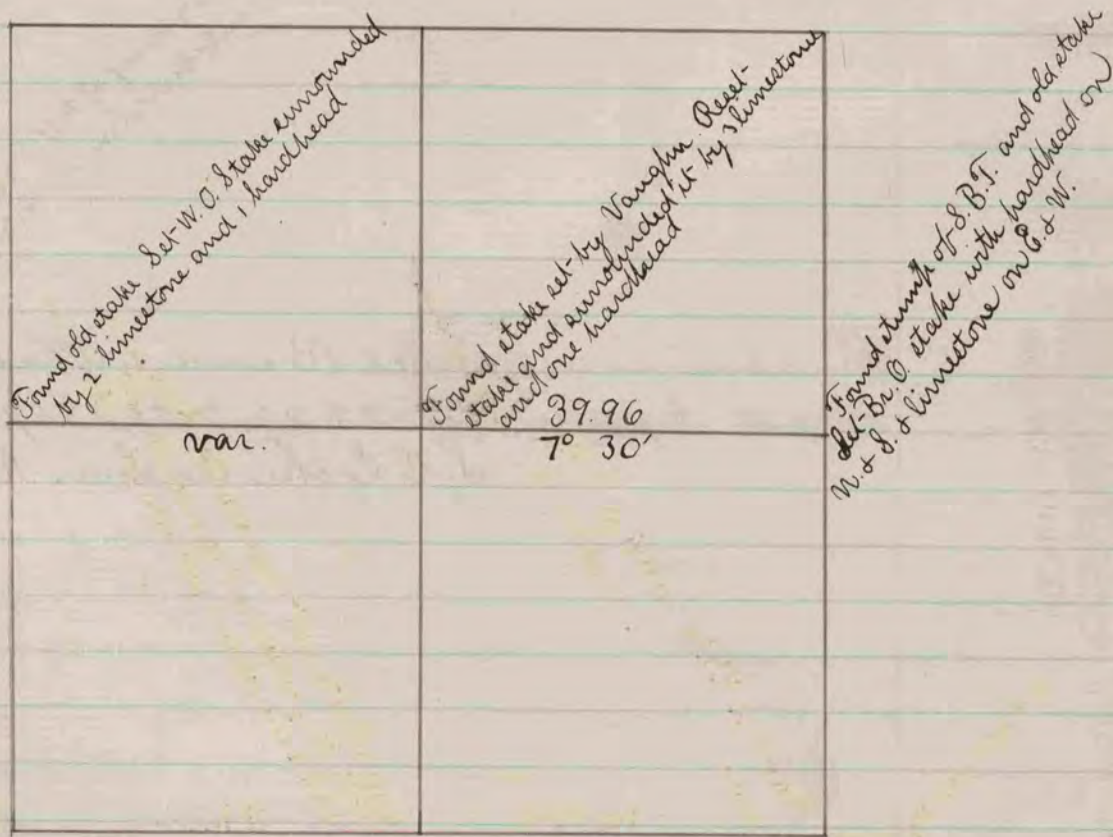 Found old stake Set W. O. Stake surrounded
by 2 limestone and 1 hardhead
Found stake set by Vaughn. Reset
stake and surrounded it by 3 limestones
and one hardhead
Found stump of S. B. T. and old stake
Set Br. O. stake with hardhead on
N. & S. & limestone on E. & W.
39.96
var. 7° 30'